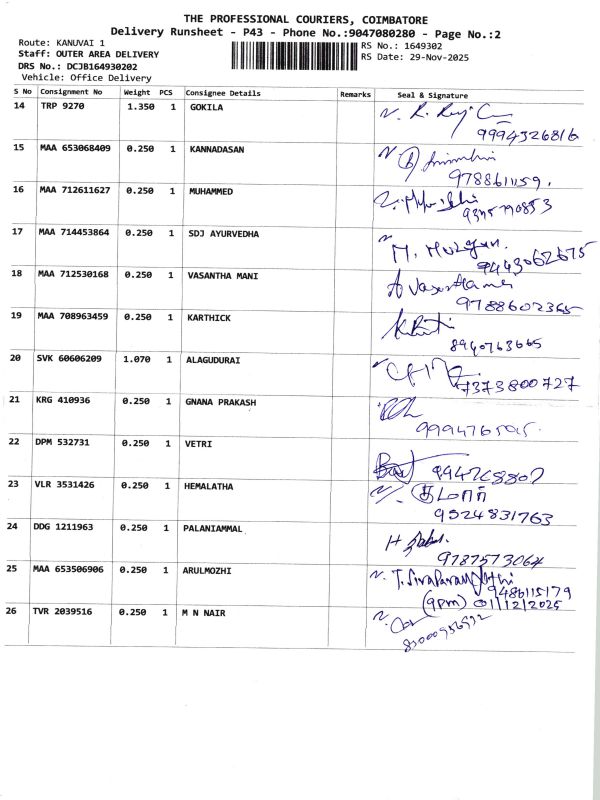 THE PROFESSIONAL COURIERS, COIMBATORE
Delivery Runsheet - P43 - Phone No.:9047080280 - Page No.:2
Route: KANUVAI 1
Staff: OUTER AREA DELIVERY
DRS No.: DCJB164930202
Vehicle: Office Delivery
RS No.: 1649302
RS Date: 29-Nov-2025
S No Consignment No Weight PCS Consignee Details Remarks Seal & Signature
14 TRP 9270 1.350 1 GOKILA
9994326816
15 MAA 653068409 0.250 1 KANNADASAN
9788611159.
16 MAA 712611627 0.250 1 MUHAMMED
17 MAA 714453864 0.250 1 SDJ AYURVEDHA
M. Murugan.
9443062675
18 MAA 712530168 0.250 1 VASANTHA MANI
A Vasanthamani
9788602365
19 MAA 708963459 0.250 1 KARTHICK
8940763665
20 SVK 60606209 1.070 1 ALAGUDURAI
7373800727
21 KRG 410936 0.250 1 GNANA PRAKASH
22 DPM 532731 0.250 1 VETRI
23 VLR 3531426 0.250 1 HEMALATHA
குமார்
9524831763
24 DDG 1211963 0.250 1 PALANIAMMAL
9787573064
25 MAA 653506906 0.250 1 ARULMOZHI
9486115179
(9pm) 01/12/2025
26 TVR 2039516 0.250 1 M N NAIR